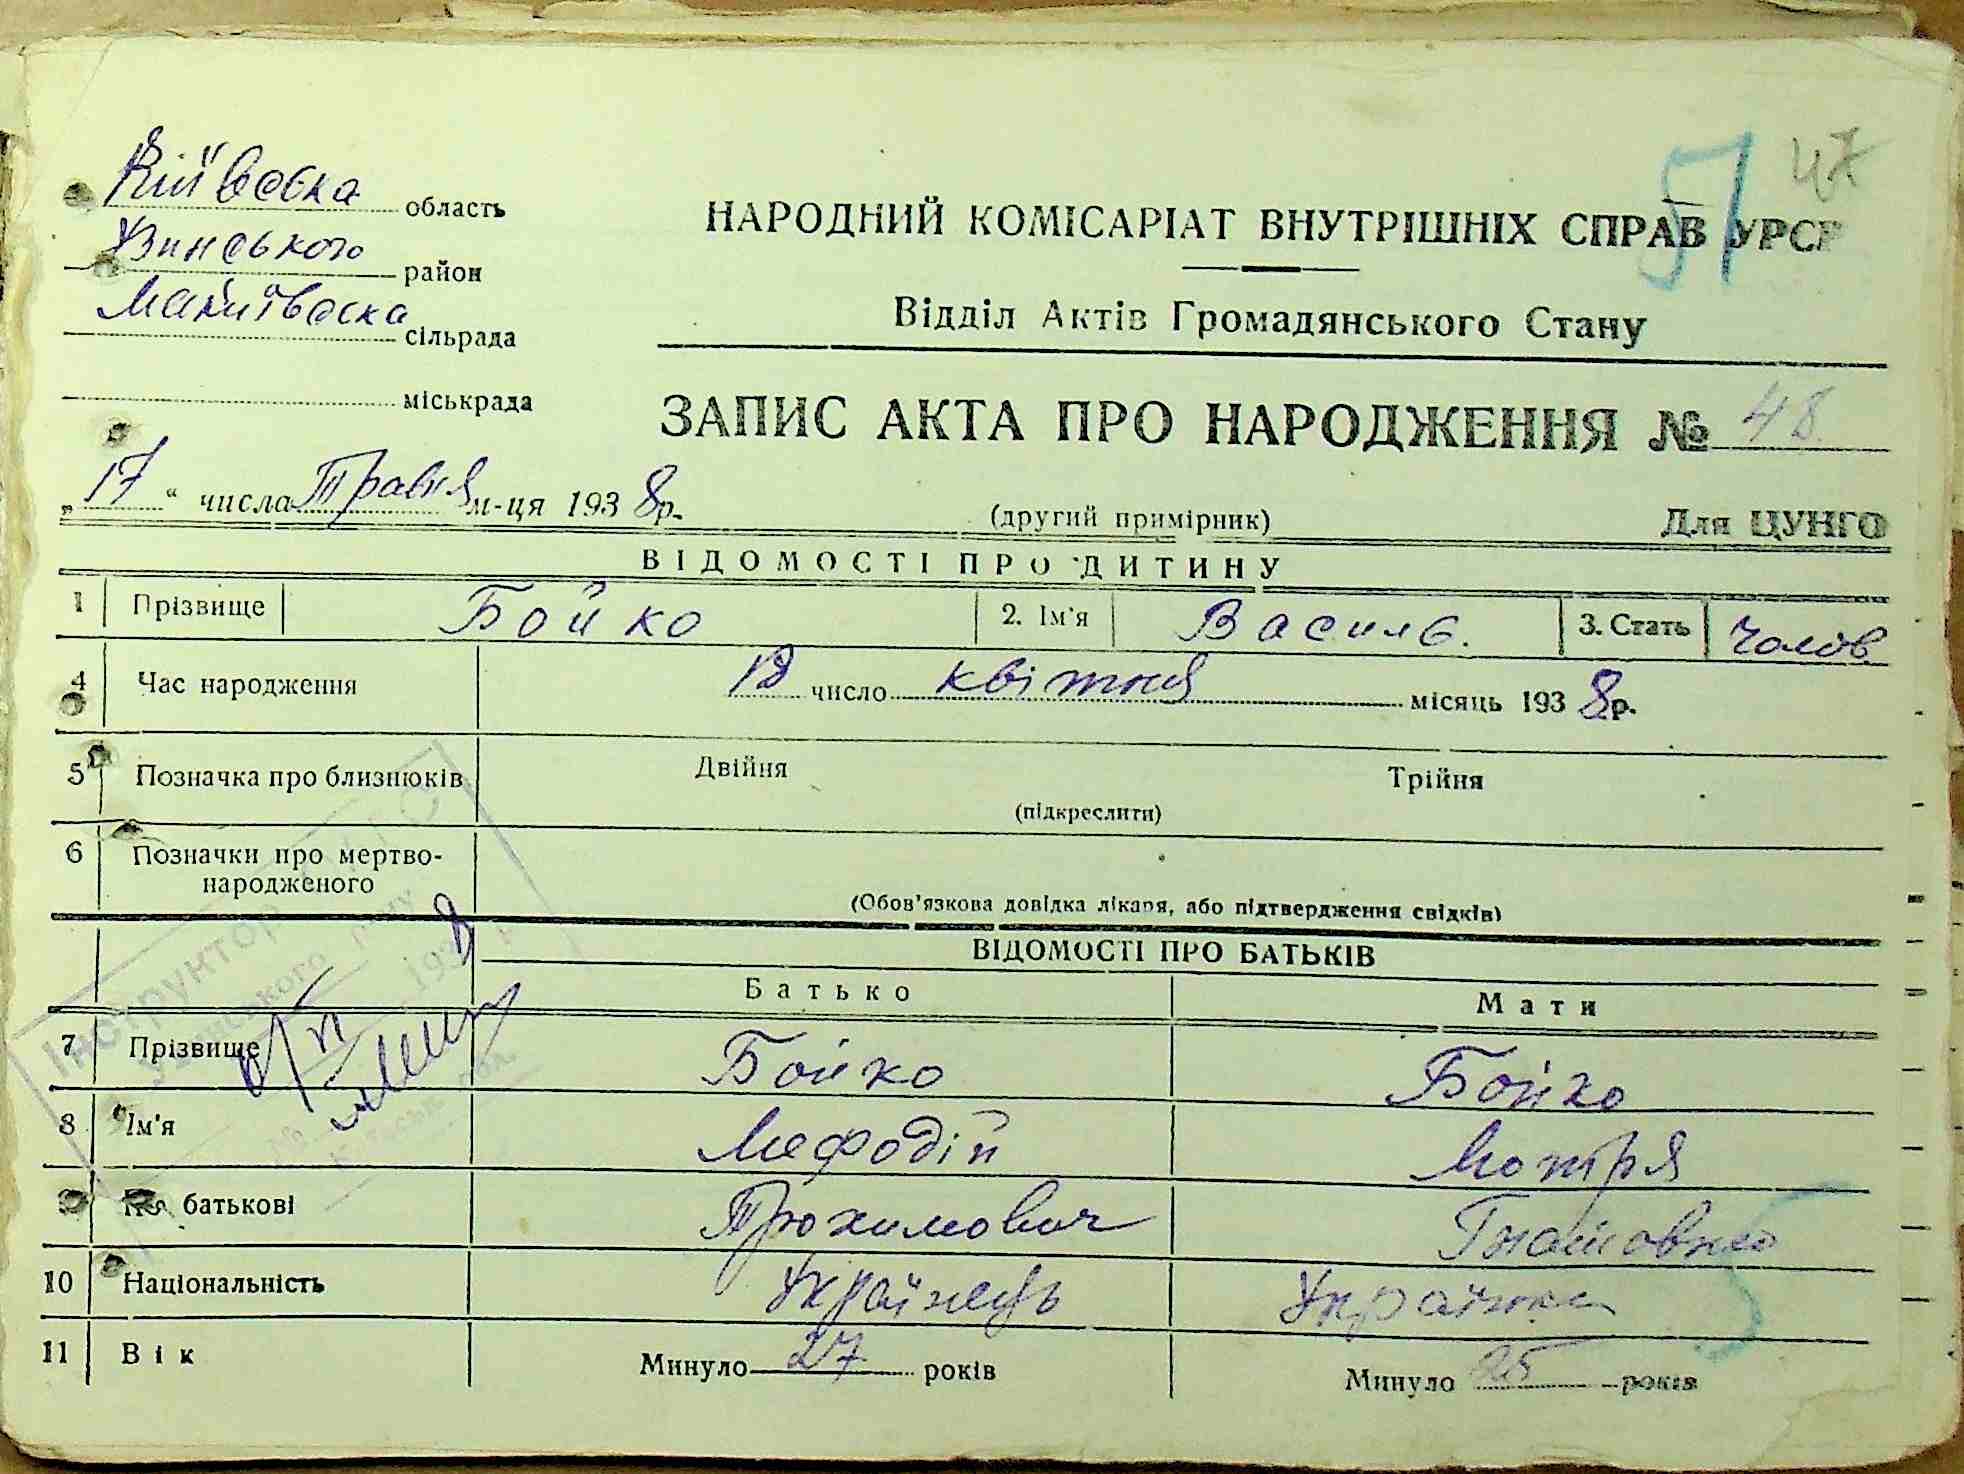 47
57
Київська область
Узинського район
Макіївська сільрада
міськрада
НАРОДНИЙ КОМІСАРІАТ ВНУТРІШНІХ СПРАВ УРСР
Відділ Актів Громадянського Стану
ЗАПИС АКТА ПРО НАРОДЖЕННЯ № 48
„17“ числа Травня м-ця 1938р.
(другий примірник) Для ЦУНГО
ВІДОМОСТІ ПРО ДИТИНУ
1 Прізвище Бойко 2. Ім'я Василь. 3. Стать Чолов
4 Час народження число квітня місяць 1938р.
5 Позначка про близнюків Двійня Трійня
(підкреслити)
6 Позначки про мертво-
народженого
(Обов'язкова довідка лікаря, або підтвердження свідків)
ВІДОМОСТІ ПРО БАТЬКІВ
Батько Мати
7 Прізвище Бойко Бойко
8 Ім'я Мефодій Мотря
9 По батькові Трохимович Гнатовна
10 Національність Українець Українка
11 Вік Минуло 27 років Минуло 25 років
Інструктор
Узинського
1938 р.